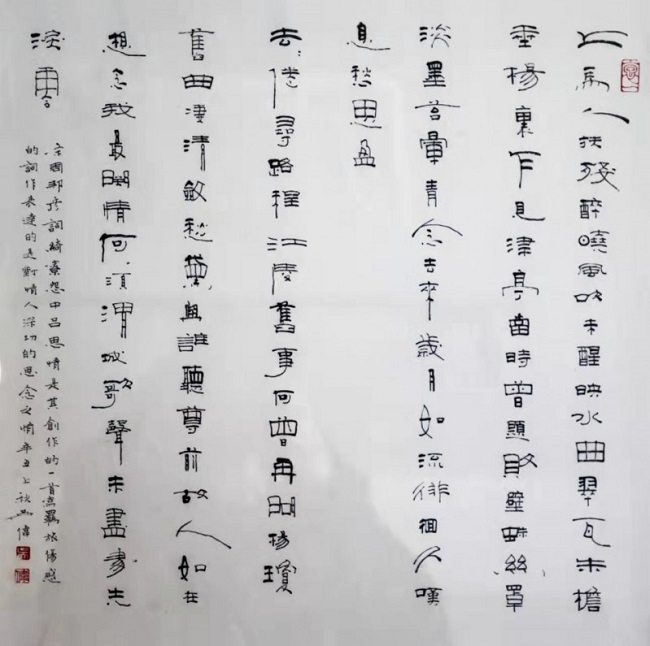 上馬人扶殘醉曉風吹未醒映水曲翠瓦朱檐
垂楊裏乍見津亭當時曾題敗壁蛛絲罩
淡墨苔暈青念去來歲月如流徘徊久嘆
息愁思盈
去〻倦尋路程江陵舊事何曾再問楊瓊
舊曲淒清斂愁黛與誰聽尊前故人如在
想念我最關情何須渭城歌聲未盡處先
淚零
宋周邦彥詞綺寮怨中呂思情是其創作的一首寫羈旅傷感
的詞作表達的是對情人深切的思念之情辛丑上秋